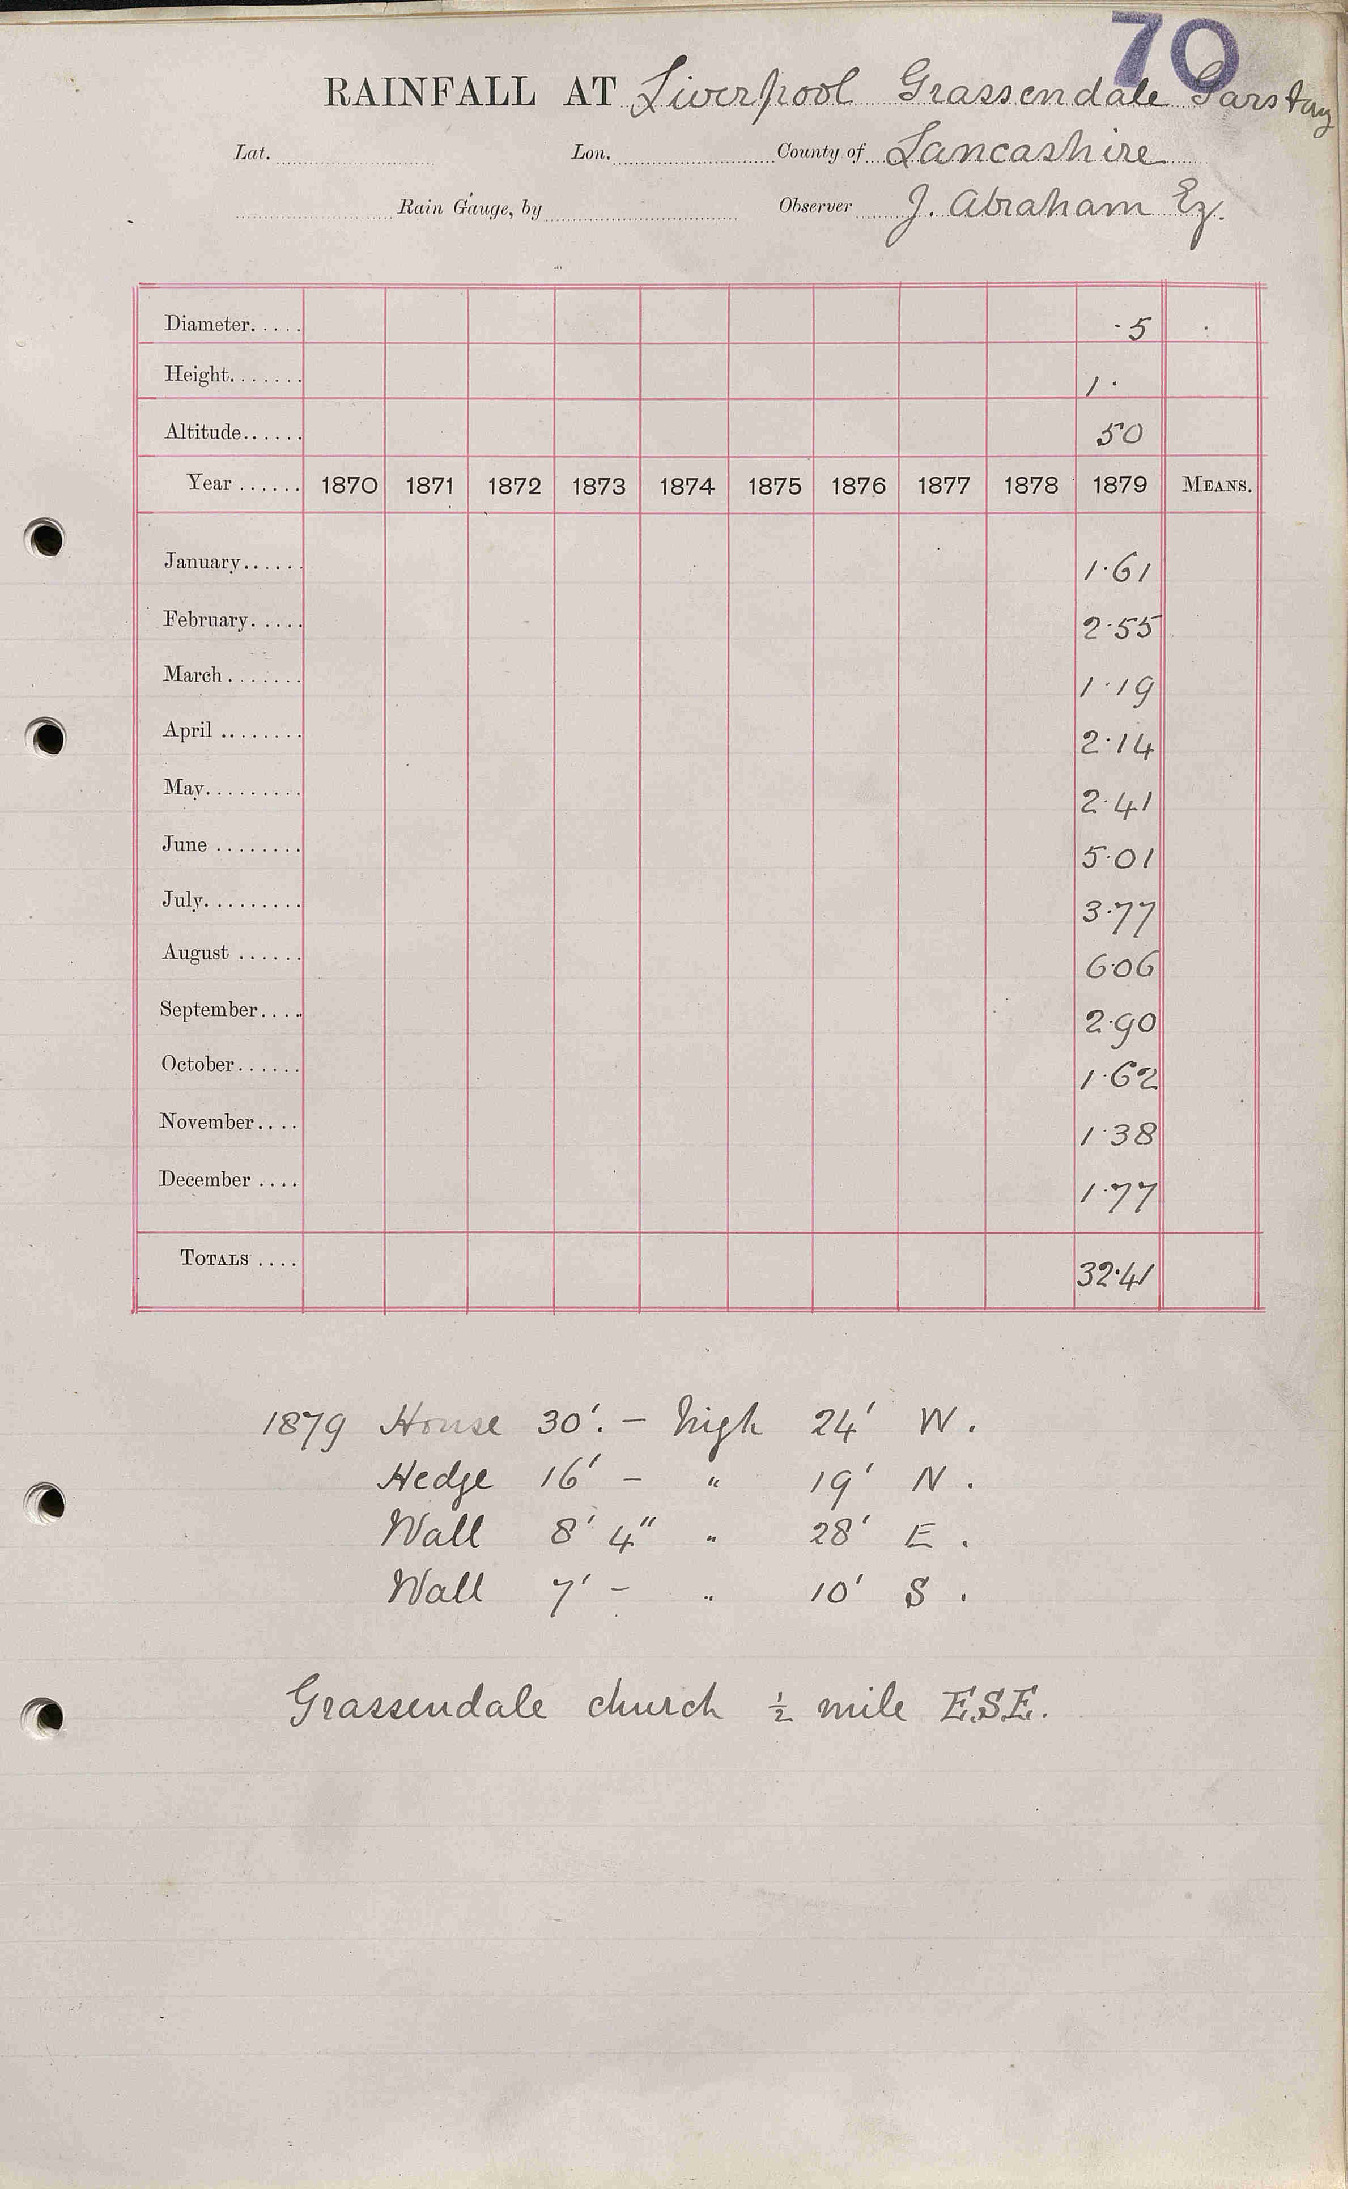 70
RAINFALL AT Liverpool Grassendale Garstang
Lat. Lon. County of Lancashire
Rain Gauge, by Observer J. Abraham Ez.
Diameter..... ·5
Height....... 1·
Altitude...... 50
Year ...... 1870 1871 1872 1873 1874 1875 1876 1877 1878 1879 MEANS.
January...... 1·61
February..... 2·55
March ....... 1·19
April ........ 2·14
May......... 2·41
June ........ 5·01
July......... 3·77
August ...... 6·06
September.... 2·90
October...... 1·62
November.... 1·38
December .... 1·77
TOTALS .... 32·41
1879 House 30'. – high 24' W.
Hedge 16' – " 19' N.
Wall 8' 4" " 28' E.
Wall 7' – " 10' S.
Grassendale church ½ mile ESE.